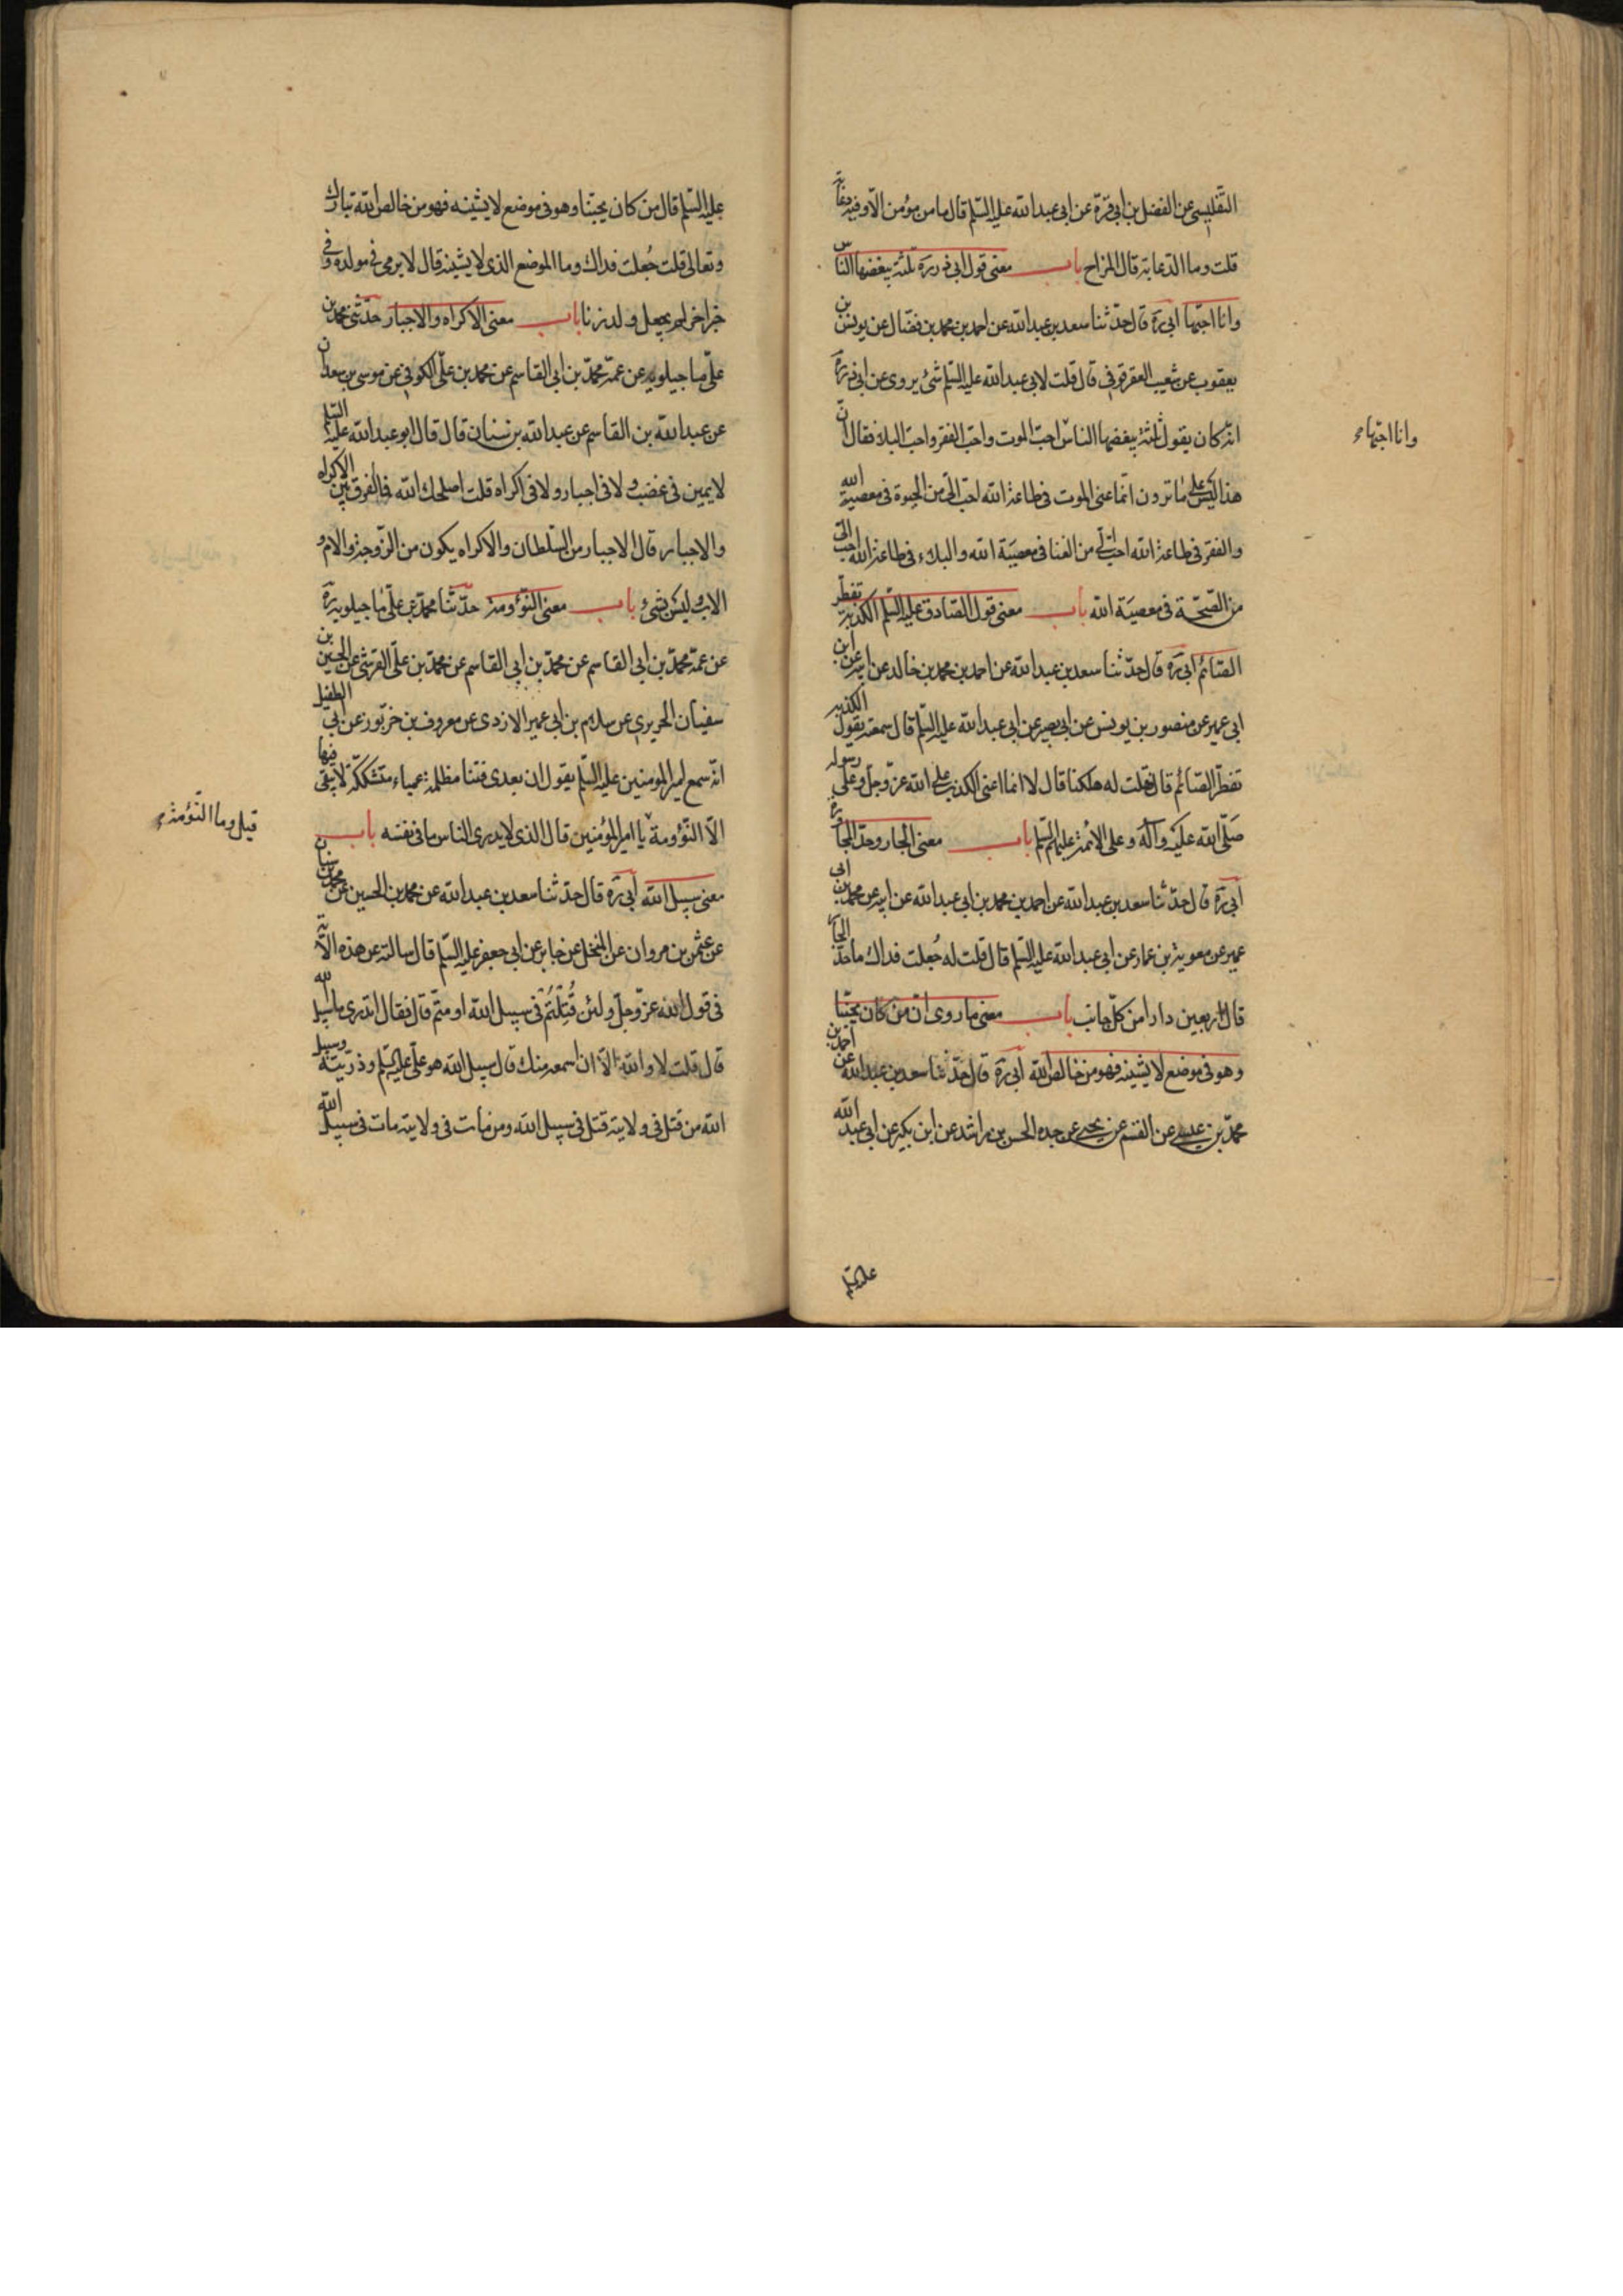 التفليسى عن الفضل بن ابى قرة عن ابى عبد الله عليه السّلم قال ما من مؤمن الّا وفيه دعابة
قلت وما الدّعابة قال المزاح باب معنى قول ابى ذر ره ثلثة يبغضها الناس
وانا احبّها ابى ره قال حدّثنا سعد بن عبد الله عن احمد بن محمد بن فضّال عن يونس بن
يعقوب عن شعيب العقرقوفى قال قلت لابى عبد الله عليه السّلم شئ يروى عن ابى ذر ره
انّه كان يقول ثلثة يبغضها الناس احبّ الموت واحبّ الفقر واحبّ البلاء فقال انّ
وانا احبّها
هذا ليس على ما ترون انّما عنى الموت فى طاعة الله احبّ الىّ من الحيوة فى معصية الله
والفقر فى طاعة الله احبّ الىّ من الغنا فى معصية الله والبلاء فى طاعة الله احبّ الىّ
من الصّحّة فى معصية الله باب معنى قول الصّادق عليه السّلم الكذبة تفطّر
الصّائم ابى ره قال حدّثنا سعد بن عبد الله عن احمد بن محمد بن خالد عن ابيه عن ابن
ابى عمير عن منصور بن يونس عن ابى بصير عن ابى عبد الله عليه السّلم قال سمعته يقول الكذبة
تفطّر الصّائم قال فقلت له هلكنا قال لا انما اعنى الكذب على الله عزّ وجلّ وعلى رسوله
صَلّى الله عليه وآله وعلى الائمة عليهم السّلم باب معنى الجار وحدّ المجاورة
ابى ره قال حدّثنا سعد بن عبد الله عن احمد بن محمد بن ابى عبد الله عن ابيه عن محمد بن ابى
عمير عن معوية بن عمار عن ابى عبد الله عليه السّلم قال قلت له جُعلت فداك ما حدّ الجار
قال اربعين دارا من كلّ جانب باب معنى ما روى انّ من كان يحبّنا
وهو فى موضع لا يشينه فهو من خالص الله ابى ره قال حَدّثنا سعد بن عبد الله عن احمد بن
محمّد بن عيسى عن القسم عن يحيى عن جده الحسن بن راشد عن ابن بكير عن ابى عبد الله
عليه السّلم
عليه السّلم قال من كان يحبّنا وهو فى موضع لا يشينه فهو من خالص الله تبارك
وتعالى قلت جُعلت فداك وما الموضع الذى لا يشينه قال لا يرمى فى مولده وفى
خبر اخر لم يجعل ولد زنا باب معنى الاكراه والاجبار حدّثنى محمد بن
علّى ماجيلويه عن عمّه محمّد بن ابى القاسم عن محمد بن علّى الكوفى عن موسى بن سعدان
عن عبد الله بن القاسم عن عبد الله بن سنان قال قال ابو عبد الله عليه السّلم
لا يمين فى غضب ولا فى اجبار ولا فى اكراه قلت اصلحك الله فما الفرق بين الاكراه
والاجبار قال الاجبار من السّلطان والاكراه يكون من الزّوجة والام و
الاب وليس بشئ باب معنى النّؤومة حدّثنا محمّد بن علّى ماجيلويه ره
عن عمّه محمّد بن ابى القاسم عن محمّد بن ابى القاسم عن محمّد بن علّى القرشى عن الحسين بن
سفيان الحريرى عن سلام بن ابى عمير الازدى عن معروف بن خربّوز عن ابى الطفيل
انّه سمع امير المومنين عليه السّلم يقول ان بعدى فتنا مظلمة عمياء متشككة لا يبقى فيها
الّا النّؤومة يا امير المؤمنين قال الذى لا يدرى الناس ما فى نفسه باب
قيل وما النّؤمة
معنى سبيل الله ابى ره قال حدّثنا سعد بن عبد الله عن محمد بن الحسين عن محمد بن سنان
عن عثمن بن مروان عن المنخل عن جابر عن ابى جعفر عليه السّلم قال سالته عن هذه الآية
فى قول الله عزّ وجلّ ولئن قُتِلْتُمْ فى سبيل الله او متّم قال فقال اتدرى ما سبيل الله
قال قلت لا والله الّا ان اسمعه منك قال سبيل الله هو علّى عليه السّلم وذريّته وسبيل
الله من قتل فى ولايته قتل فى سبيل الله ومن مات فى ولايته مات فى سبيل الله